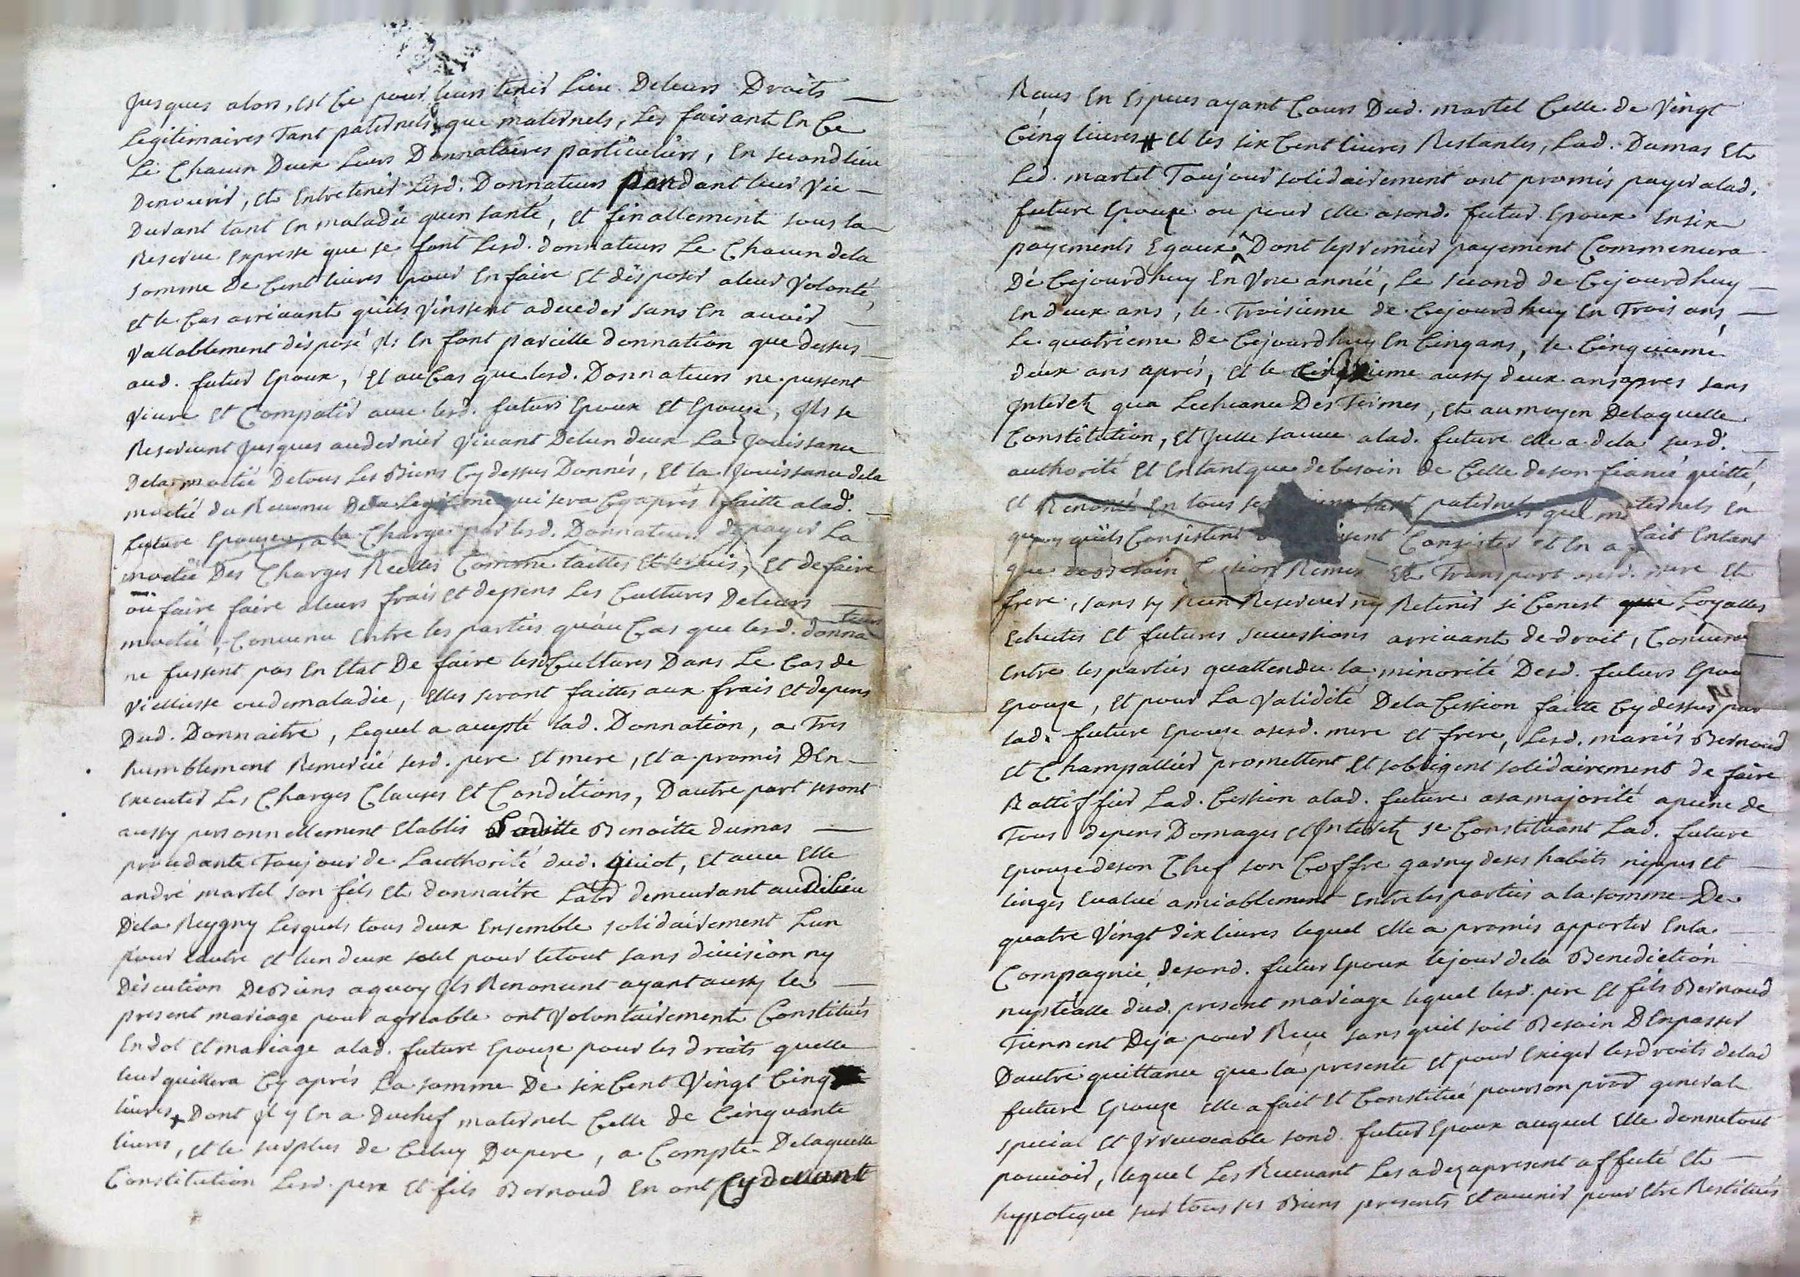 Jusques alors, est Ce pour leurs tenir Lieu Deleurs Droits
Legitimaires Tant paternels que maternels, Les faisant En Ce
Le Chacun Deux Leurs Donnataires particuliers, En second lieu
Denourir, et Entretenir Lesd. Donnateurs pendant leur Vie
Durant tant En maladie quen santé, et finallement sous la
Reserve Expresse que se font Lesd. Donnateurs Le Chacun dela
somme De Cent livres pour En faire Et disposer a leur Volonté,
et le Cas arrivant quils Vinssent adeceder sans En avoir
Vallablement disposé Ils En font pareille donnation que dessus
aud. futur Epoux, Et au Cas que lesd. Donnateurs ne pussent
Vivre et Compatir avec lesd. futurs Epoux et Epouze, Ils se
Reservent Jusques audernier Vivant Delun deux La Jouissance
Dela moitié Detous Les Biens Cy dessus Donnés, et la Jouissance dela
moitié du Revenu Dela Legitime qui sera Cy après faitte alad.
future Epouze, a la Charge par lesd. Donnateurs depayer La
moitié Des Charges Reelles Comme tailles Et servis, Et defaire
ou faire faire aleurs frais et depens Les Cultures Deleurs
moitié, Convenu Entre les parties quau Cas que lesd. donnateurs
ne fussent pas En Etat De faire lesd. Cultures Dans Le Cas de
Viellesse oudemaladie, Elles seront faittes aux frais et depens
Dud. Donnaitre, Lequel a accepté lad. Donnation, a Tres
humblement Remercié sesd. pere Et mere, et a promis DEn
Executer Les Charges Clauses et Conditions, Dautre part seront
aussy personnellement Etablis Ladite Benoitte dumas
procedante Toujour de Lauthorité dud. quiot, Et avec Elle
andré martel son fils et donnaitre Labr demeurant audit lieu
Dela Reygny Lesquels tous deux Ensemble solidairement Lun
pour lautre et lun deux seul pour letout sans division ny
Discution De Biens aquoy Ils Renoncent ayant aussy le
present mariage pour agreable ont Volontairement Constitués
En dot et mariage alad. future Epouze pour les droits quelle
leur quittera Cy aprés La somme De six Cent Vingt Cinq
livres Dont Il y En a Duchef maternel Celle de Cinquante
livres, et le surplus de Celuy Dupere, a Compte Delaquelle
Constitution Lesd. pere Et fils Bernoud En ont Cy devant
Reçus En Especes ayant Cours Dud. martel Celle de Vingt
Cinq livres et les six Cent livres Restantes, Lad. Dumas et
Led. martel Toujour solidairement ont promis payer alad.
future Epouze ou pour elle asond. futur Epoux En six
payements Egaux Dont lepremier payement Commencera
Dé Cejourdhuy En Une année, Le second de Cejourdhuy
En deux ans, le Troisieme de Cejourdhuy En Trois ans,
Le quatrieme De Cejourdhuy En Cinq ans, le Cinquieme
deux ans aprés, et le sixieme aussy deux ans apres sans
Interets qua Lecheance Des Termes, et au moyen Delaquelle
Constitution, et Icelle sauve alad. future elle a dela susd.
authorité et Entant que debesoin de Celle deson fiancé quitté,
et Renoncé En tous ses tant paternels que maternels En
quoy quils Consistent Consister et En a fait Entant
que Cession Remise Et Transport asesd. mere et
frere, sans sy Rien Reserver ny Retenir si Cenest que Loyalles
Echutes et futures successions arrivant de droit, Convenu
Entre les parties quattendu la minorité Desd. futurs Epoux
Epouze, et pour La Validité Dela Cession faitte Cy dessus par
lad. future Epouse asesd. mere et frere, Lesd. mariés Bernoud
et Champallier promettent et sobligent solidairement de faire
Rattiffier Lad. Cession alad. future asa majorité a peine de
Tous depens Domages et Interets se Constituant Lad. future
Epouze deson Chef son Coffre garny de ses habits nippes et
linges Evalué amiablement Entre les parties a la somme De
quatre Vingt dix livres lequel Elle a promis apporter En la
Compagnie desond. futur Epoux lejour dela Benediction
nuptialle dud. present mariage lequel lesd. pere et fils Bernoud
Tiennent Deja pour Reçu sans quil soit Besoin DEnpasser
Dautre quittance que la presente et pour Exiger lesdroits delad
future Epouze Elle a fait et Constitué pourson procr general
special et Irrevocable sond. futur Epoux auquel Elle donne tout
pouvoir, lequel Les Recevant Les a dez apresent affecté et
hypoteque sur tous ses Biens presents et avenir pour Etre Restitués